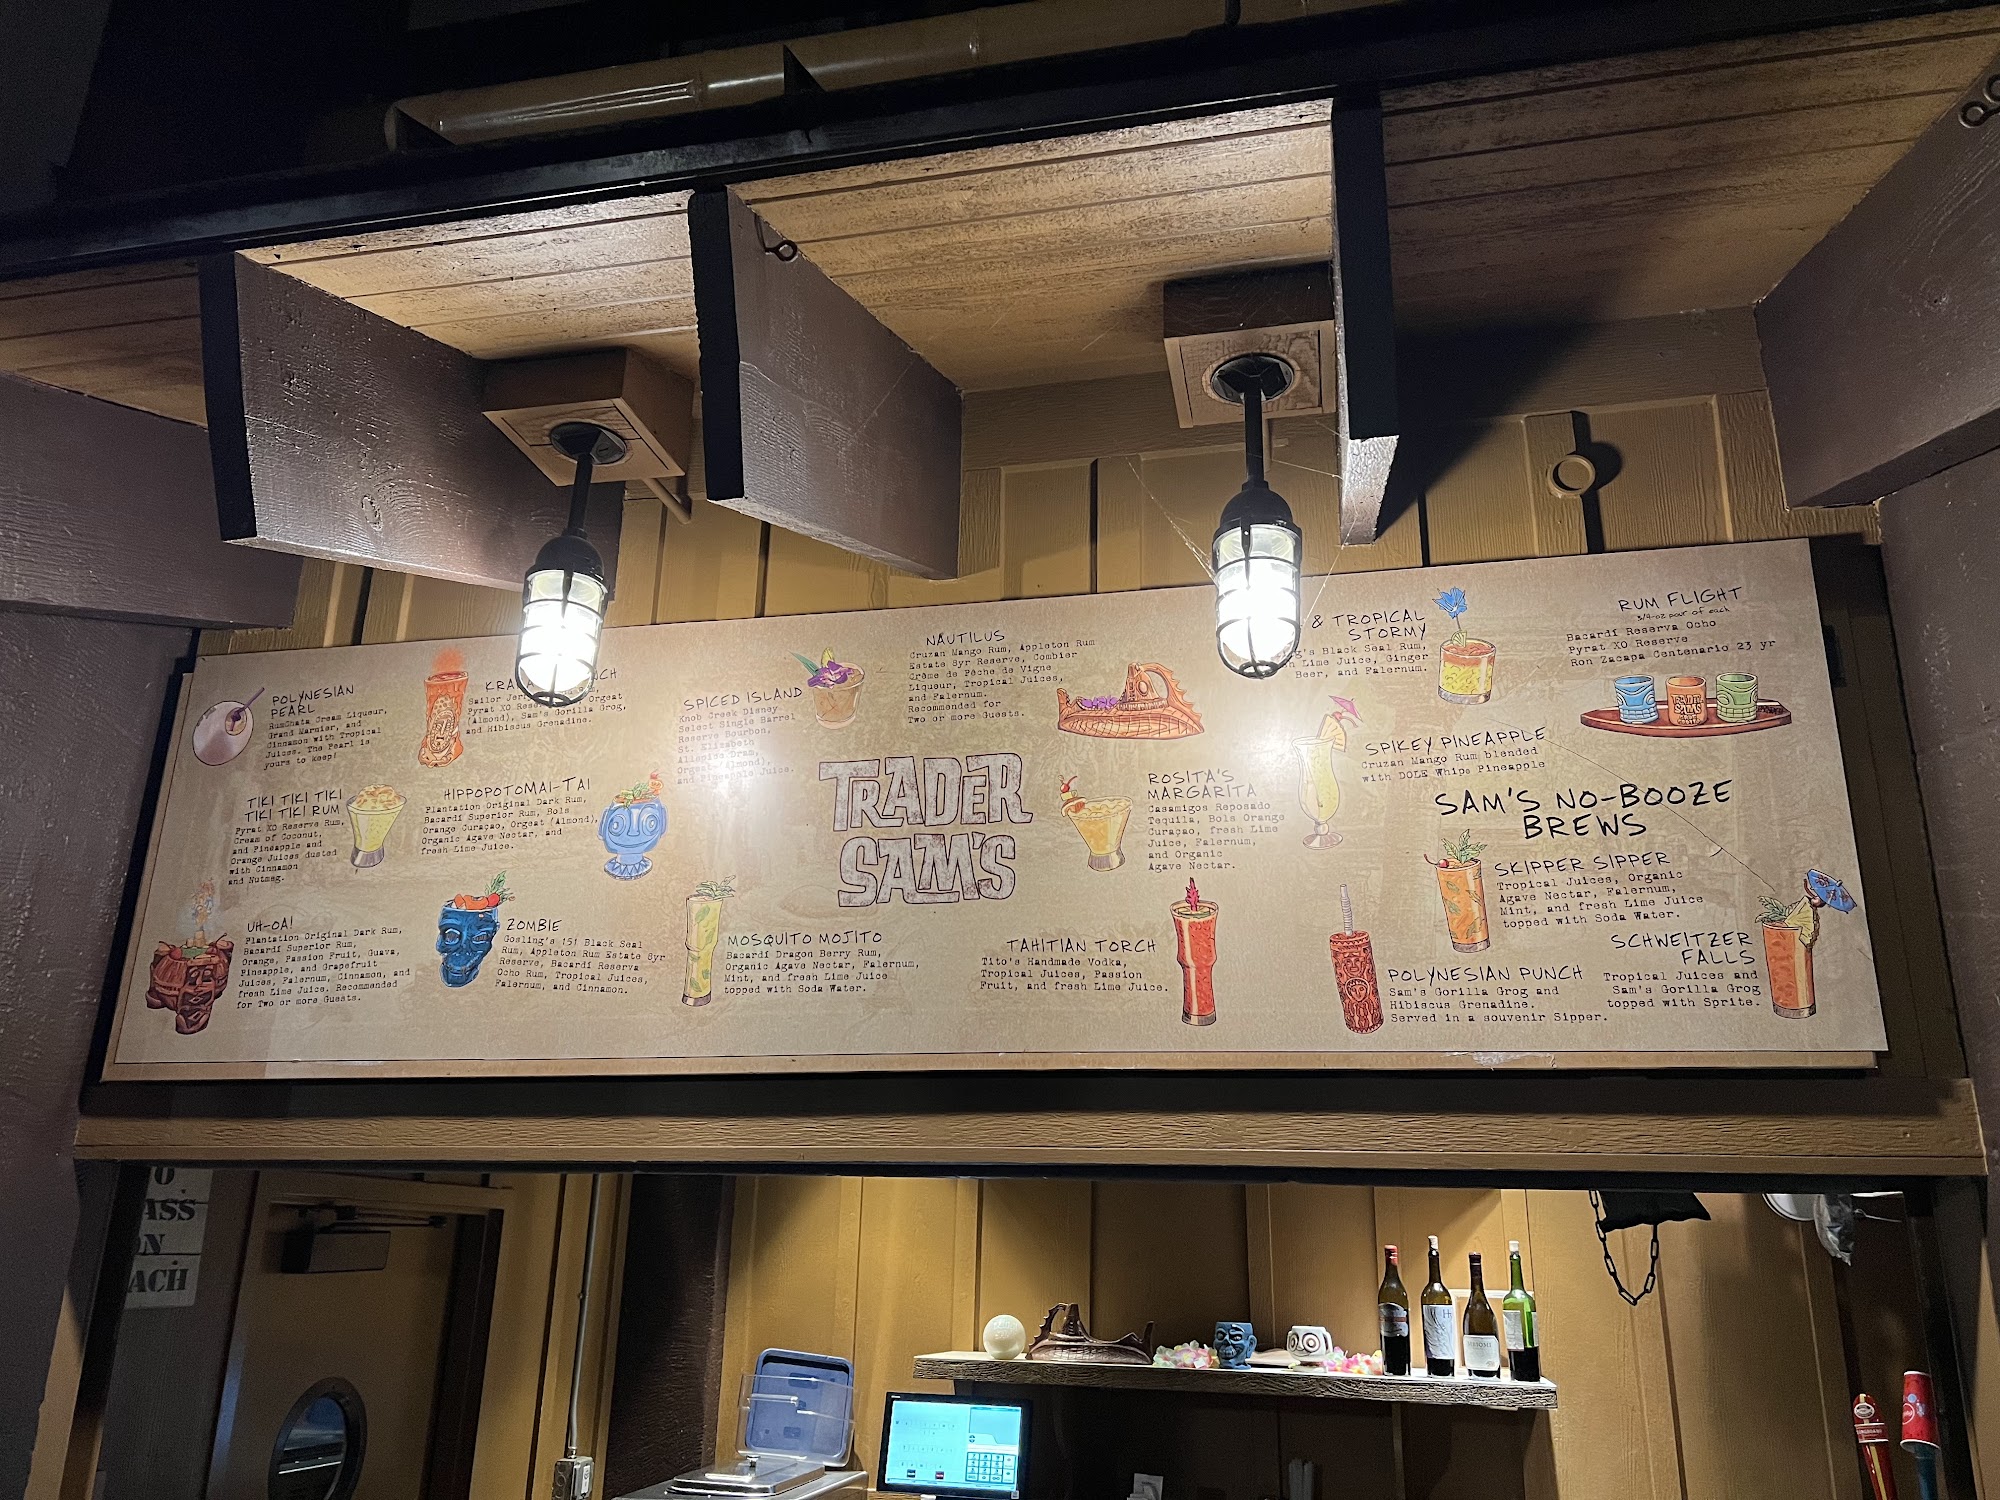 POLYNESIAN
PEARL
RumChata Cream Liqueur,
Grand Marnier, and
Cinnamon with Tropical
Juices. The Pearl is
yours to keep!
Sailor
Pyrat XO Orgeat
(Almond), Sam's Gorilla Grog,
and Hibiscus Grenadine.
SPICED ISLAND
Knob Creek Disney
Select Single Barrel
Reserve Bourbon,
St. Elizabeth
Allspice Dram,
Orgeat (Almond),
and Pineapple Juice.
NAUTILUS
Cruzan Mango Rum, Appleton Rum
Estate 8yr Reserve, Combier
Crème de Pêche de Vigne
Liqueur, Tropical Juices,
and Falernum.
Recommended for
Two or more Guests.
& TROPICAL
STORMY
Black Seal Rum,
Lime Juice, Ginger
Beer, and Falernum.
RUM FLIGHT
3/4-oz pour of each
Bacardí Reserva Ocho
Pyrat XO Reserve
Ron Zacapa Centenario 23 yr
TIKI TIKI TIKI
TIKI TIKI RUM
Pyrat XO Reserve Rum,
Cream of Coconut,
and Pineapple and
Orange Juices dusted
with Cinnamon
and Nutmeg.
HIPPOPOTOMAI-TAI
Plantation Original Dark Rum,
Bacardí Superior Rum, Bols
Orange Curaçao, Orgeat (Almond),
Organic Agave Nectar, and
fresh Lime Juice.
TRADER
SAM'S
ROSITA'S
MARGARITA
Casamigos Reposado
Tequila, Bols Orange
Curaçao, fresh Lime
Juice, Falernum,
and Organic
Agave Nectar.
SPIKEY PINEAPPLE
Cruzan Mango Rum blended
with DOLE Whip® Pineapple
SAM'S NO-BOOZE
BREWS
SKIPPER SIPPER
Tropical Juices, Organic
Agave Nectar, Falernum,
Mint, and fresh Lime Juice
topped with Soda Water.
UH-OA!
Plantation Original Dark Rum,
Bacardí Superior Rum,
Orange, Passion Fruit, Guava,
Pineapple, and Grapefruit
Juices, Falernum, Cinnamon, and
fresh Lime Juice. Recommended
for Two or more Guests.
ZOMBIE
Gosling's 151 Black Seal
Rum, Appleton Rum Estate 8yr
Reserve, Bacardí Reserva
Ocho Rum, Tropical Juices,
Falernum, and Cinnamon.
MOSQUITO MOJITO
Bacardí Dragon Berry Rum,
Organic Agave Nectar, Falernum,
Mint, and fresh Lime Juice
topped with Soda Water.
TAHITIAN TORCH
Tito's Handmade Vodka,
Tropical Juices, Passion
Fruit, and fresh Lime Juice.
POLYNESIAN PUNCH
Sam's Gorilla Grog and
Hibiscus Grenadine.
Served in a souvenir Sipper.
SCHWEITZER
FALLS
Tropical Juices and
Sam's Gorilla Grog
topped with Sprite.